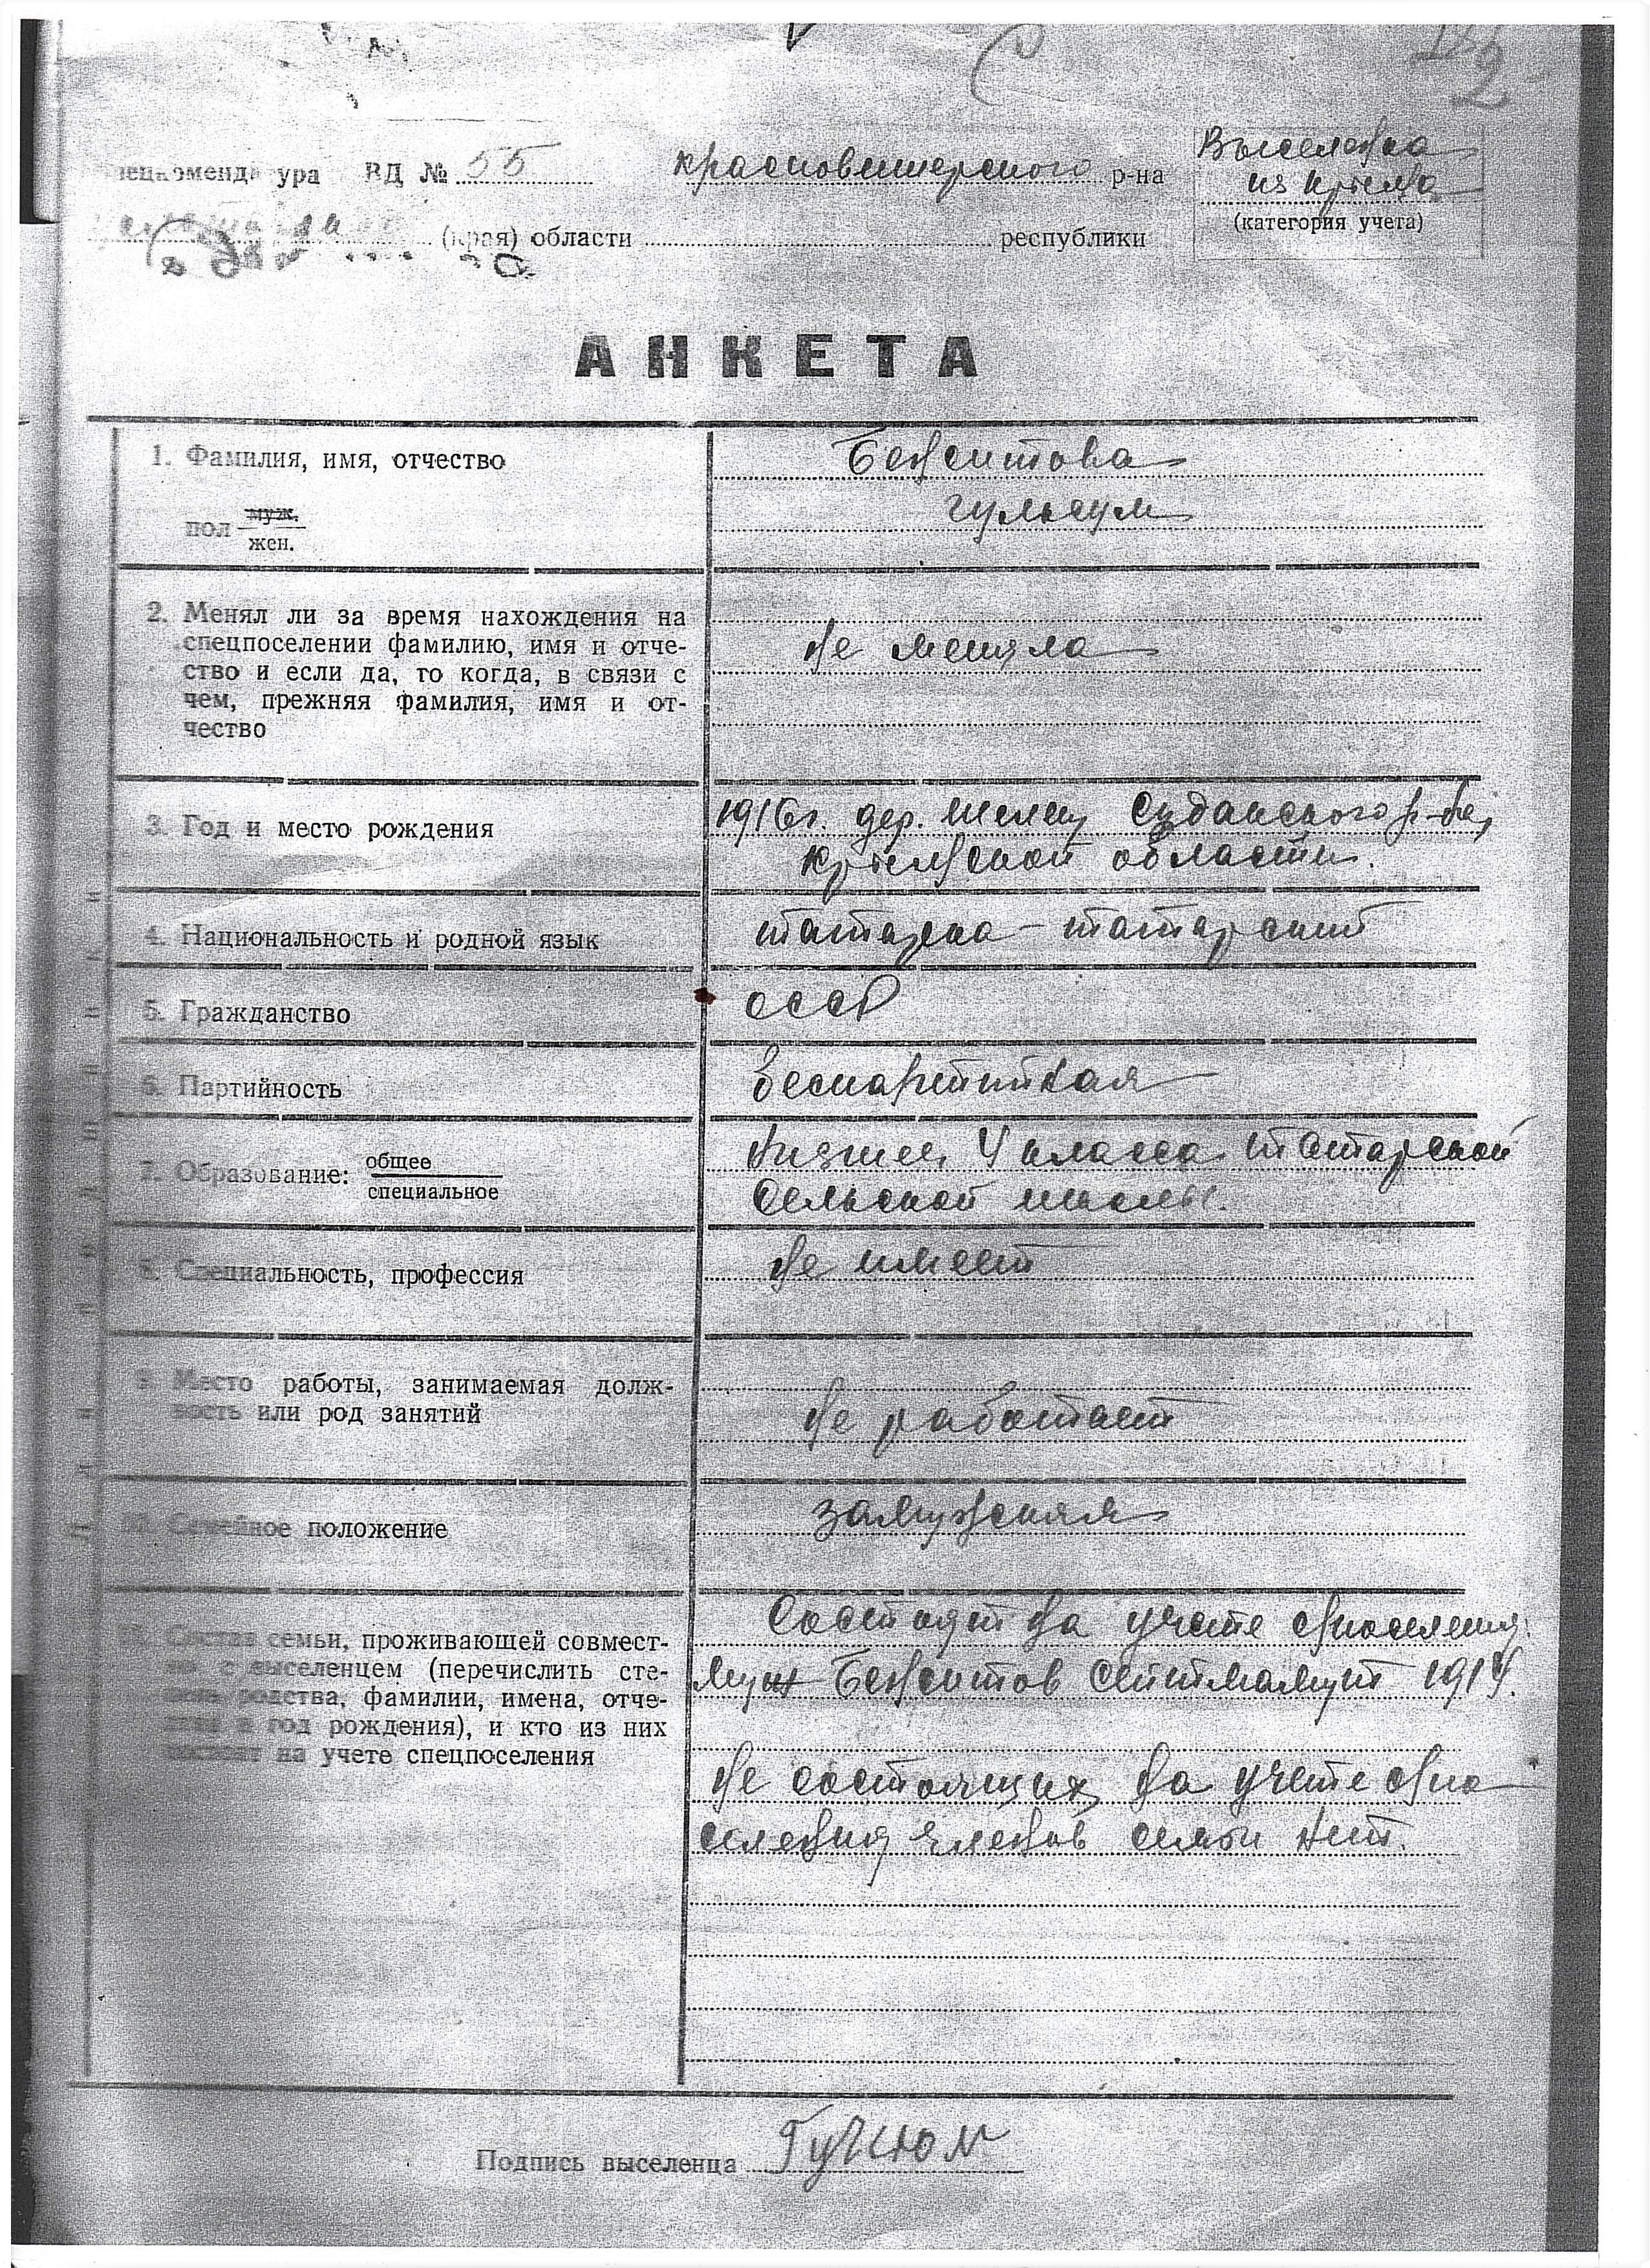 ура ВД № 55 Красновишерского р-на
Выселена
из Крыма
(категория учета)
(края) области республики
АНКЕТА
1. Фамилия, имя, отчество
пол муж.
жен.
Бекситова
Гульсум
2. Менял ли за время нахождения на
спецпоселении фамилию, имя и отче-
ство и если да, то когда, в связи с
чем, прежняя фамилия, имя и от-
чество
не меняла
3. Год и место рождения
1916г. дер. Шелен Суданского р-на,
Крымской области.
4. Национальность и родной язык
татарка - татарский
5. Гражданство
СССР
6. Партийность
беспартийная
7. Образование: общее
специальное
низшее, 4 класса татарской
сельской школы.
8. Специальность, профессия
не имеет
9. Место работы, занимаемая долж-
ность или род занятий
не работает
Семейное положение
замужняя
Состав семьи, проживающей совмест-
но с выселенцем (перечислить сте-
пень родства, фамилии, имена, отче-
ства и год рождения), и кто из них
состоит на учете спецпоселения
Состоят на учете
муж Бекситов Сейтмамут 1914.
не состоящих на учете
членов семьи нет.
Подпись выселенца